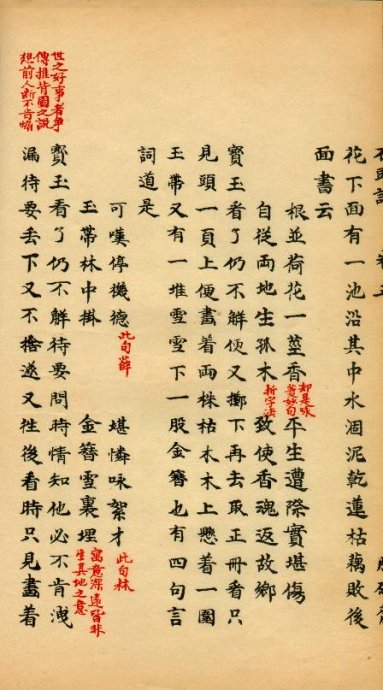 花下面有一池沿其中水涸泥乾蓮枯藕敗後
面書云
根並荷花一莖香
却是咏
菱妙句
平生遭際實堪傷
自從両地生孤木
拆字法
致使香魂返故鄉
寳玉看了仍不解便又擲下再去取正冊看只
見頭一頁上便畫着両株枯木木上懸着一圍
玉帶又有一堆雪雪下一股金簪也有四句言
詞道是
可嘆停機德
此句薛
堪憐咏絮才
此句林
玉帶林中掛
金簪雪裏埋
寓意深遠皆非
生其地之意
世之好事者爭
傳推背圖之說
想前人斷不肯煽
寳玉看了仍不解待要問時情知他必不肯洩
漏待要丟下又不捨遂又往後看時只見畫着